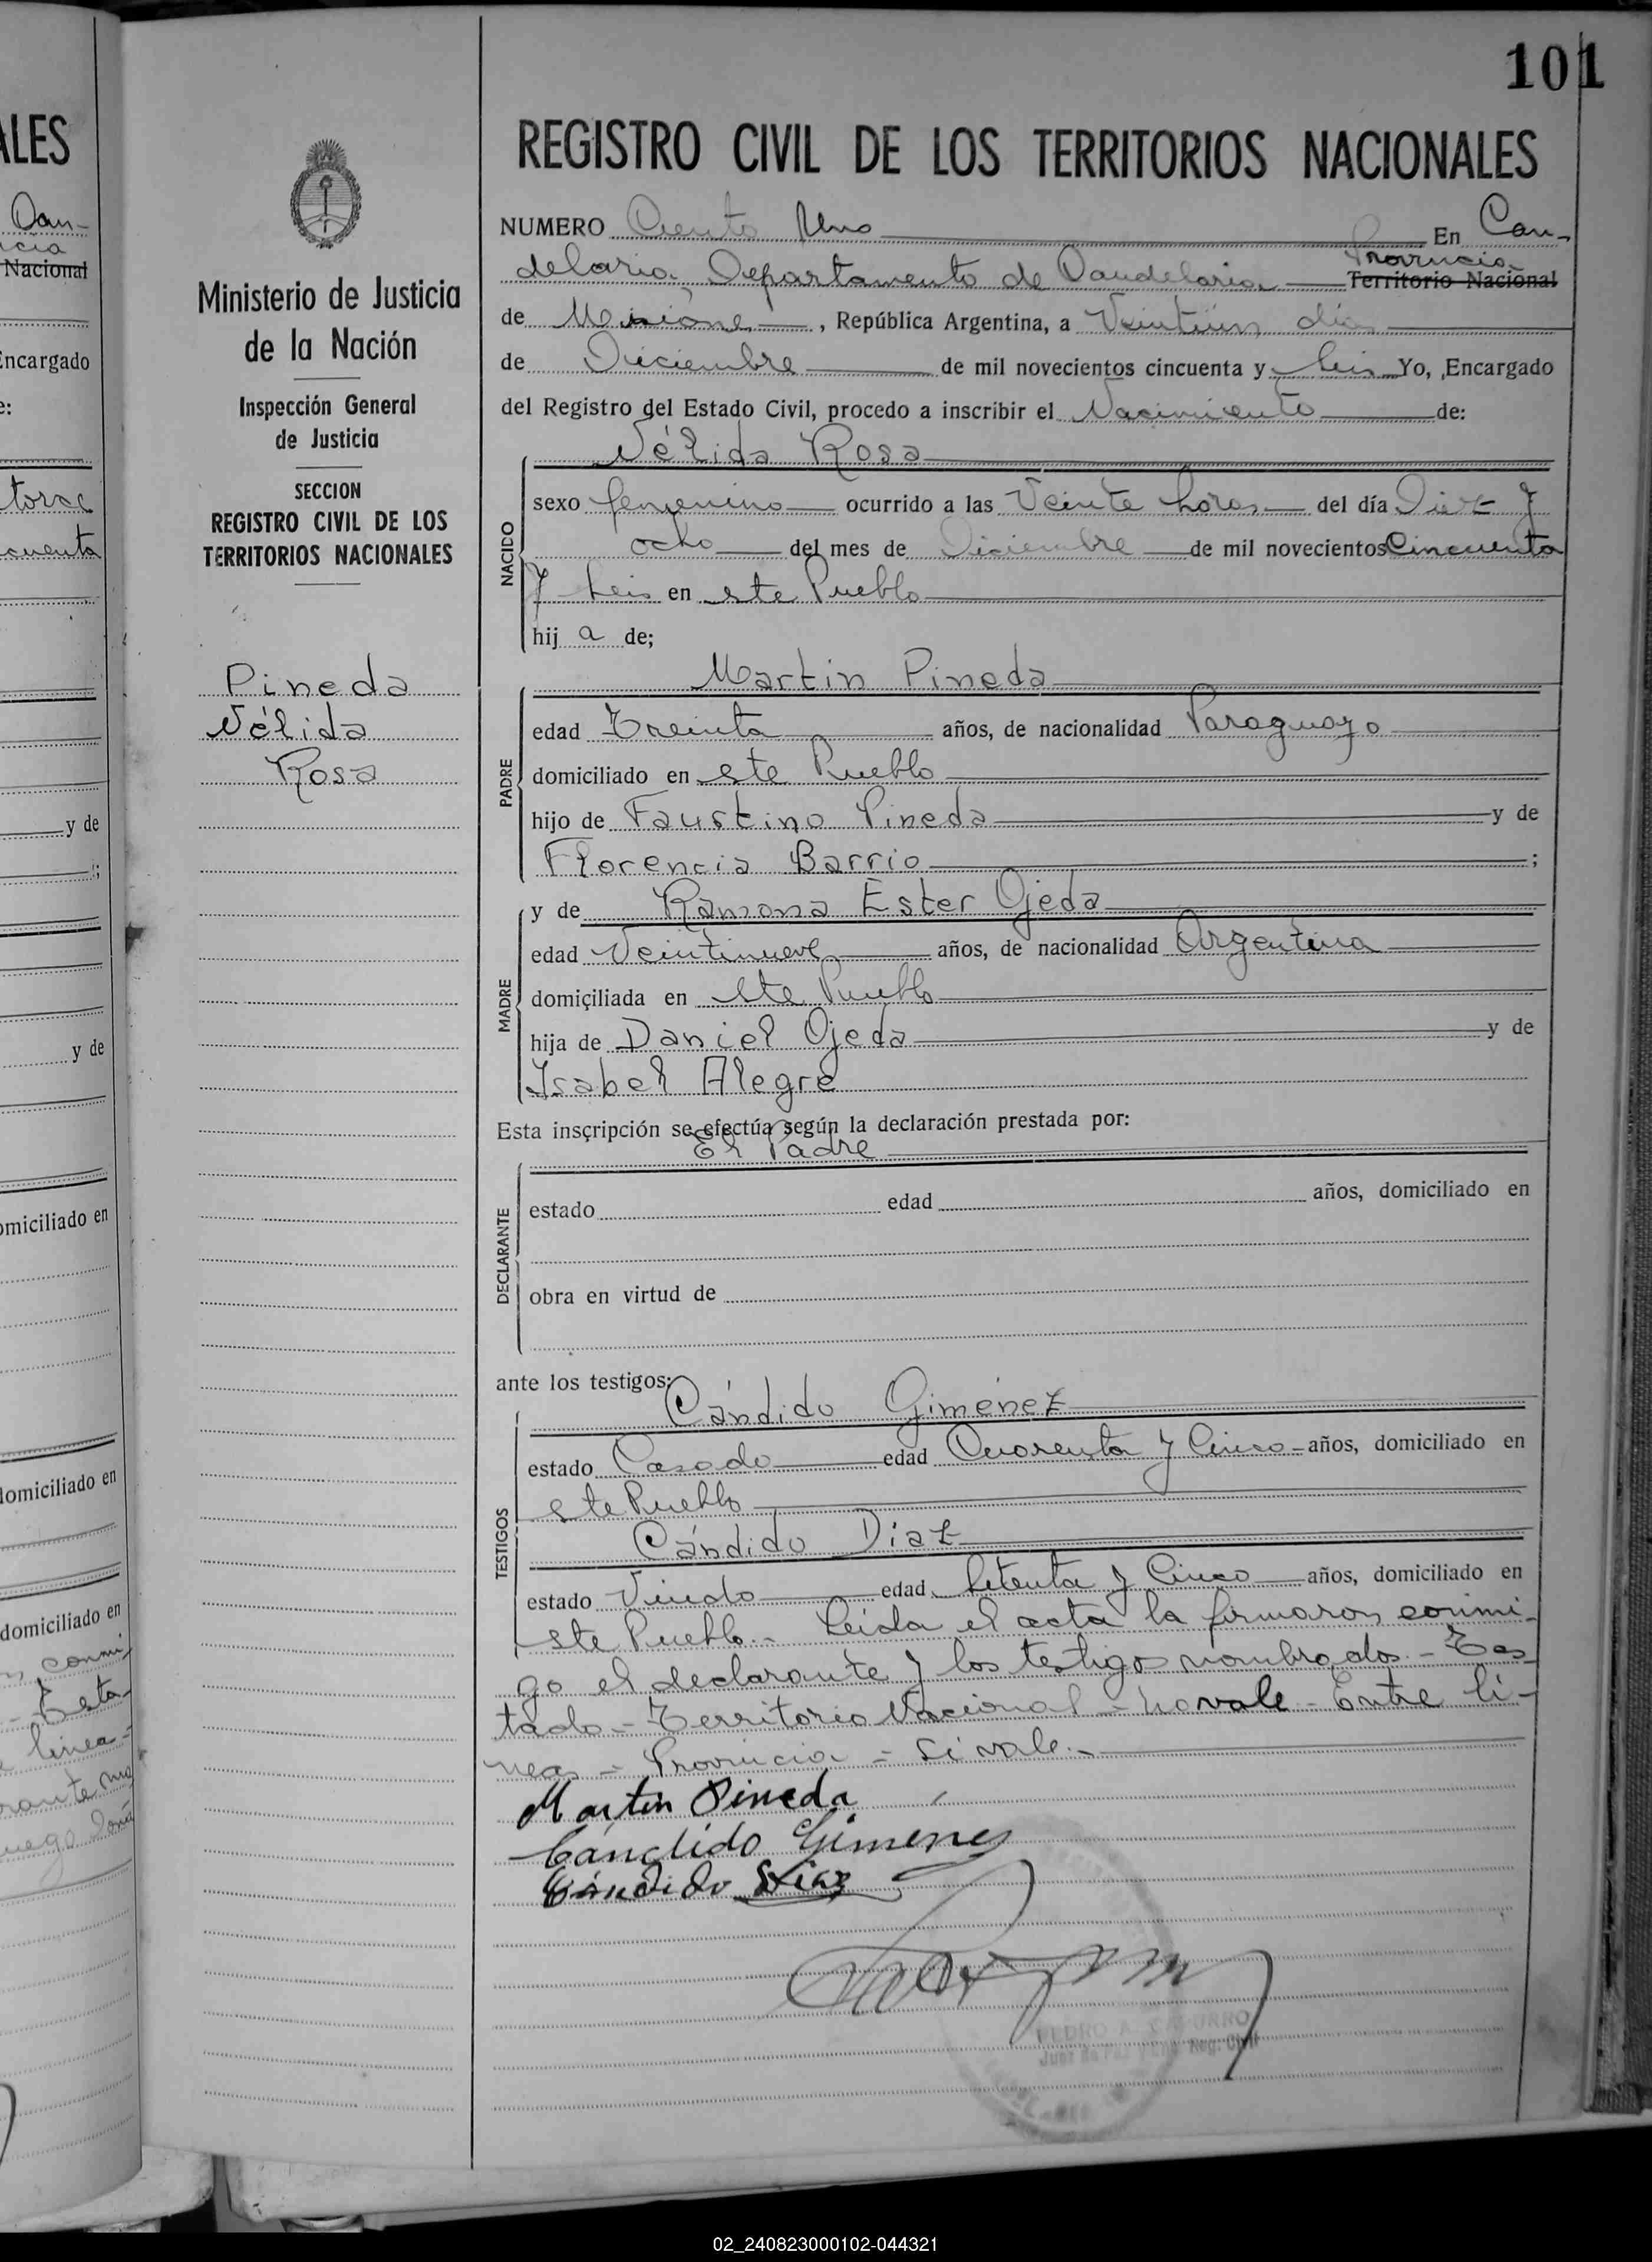 101
REGISTRO CIVIL DE LOS TERRITORIOS NACIONALES
NUMERO Ciento Uno En Can-
Provincia
delaria, Departamento de Candelaria Territorio Nacional
de Misiones, República Argentina, a Veintiún días
de Diciembre de mil novecientos cincuenta y Seis Yo, Encargado
del Registro del Estado Civil, procedo a inscribir el Nacimiento de:
Nélida Rosa
NACIDO
sexo femenino ocurrido a las Veinte horas del día Diez y
ocho del mes de Diciembre de mil novecientos Cincuenta
y Seis en este Pueblo
hij a de;
Martin Pineda
PADRE
edad Treinta años, de nacionalidad Paraguayo
domiciliado en este Pueblo
hijo de Faustino Pineda y de
Florencia Barrio ;
y de Ramona Ester Ojeda
MADRE
edad Veintinueve años, de nacionalidad Argentina
domiciliada en este Pueblo
hija de Daniel Ojeda y de
Isabel Alegre
Esta inscripción se efectúa según la declaración prestada por:
El Padre
DECLARANTE
estado edad años, domiciliado en
obra en virtud de
ante los testigos:
Cándido Giménez
TESTIGOS
estado Casado edad Cuarenta y Cinco años, domiciliado en
este Pueblo
Cándido Díaz
estado Viudo edad Setenta y Cinco años, domiciliado en
este Pueblo.- Leída el acta la firmaron conmi-
go el declarante y los testigos nombrados.- Tes-
tado - Territorio Nacional - no vale - Entre lí-
neas - Provincia - Sí vale.-
Martin Pineda
Cándido Gimenez
Cándido Diaz
Ministerio de Justicia
de la Nación
Inspección General
de Justicia
SECCION
REGISTRO CIVIL DE LOS
TERRITORIOS NACIONALES
Pineda
Nélida
Rosa
ALES
Can-
ncia
Nacional
Encargado
e:
cuenta
y de
y de
omiciliado en
domiciliado en
domiciliado en
conmi
Testa-
linea-
PEDRO A.
Reg. Civil
02_240823000102-044321